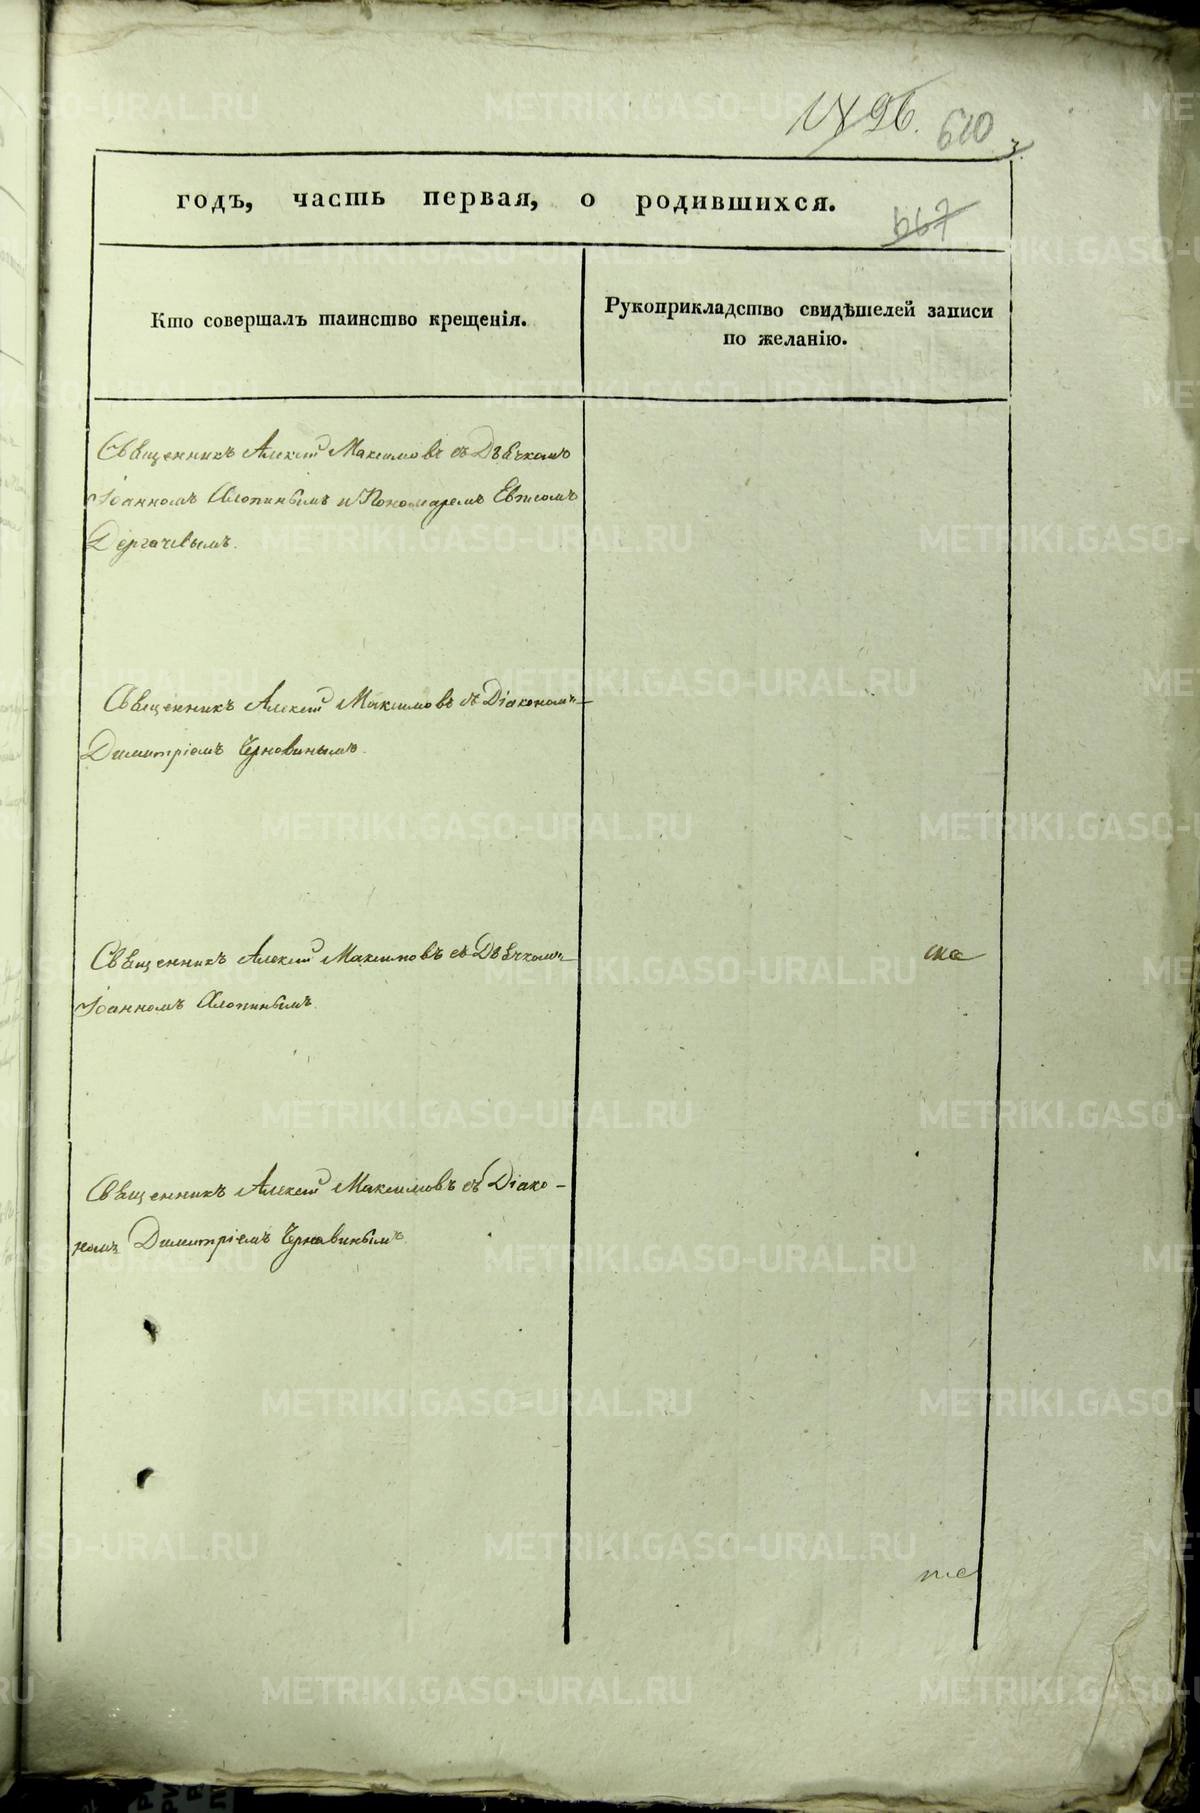 1496.
610
3.
годъ, часть первая, о родившихся.
667
Кто совершалъ таинство крещенія.
Рукоприкладство свидѣтелей записи
по желанію.
Священникъ Алексій Максимовъ съ Дьячкомъ
Іоанномъ Аляпинымъ и Пономаремъ
Дергачевымъ.
Священникъ Алексій Максимовъ съ Діакономъ
Димитріемъ Чернавинымъ.
Священникъ Алексій Максимовъ съ Дьячкомъ
Іоанномъ Аляпинымъ.
Священникъ Алексій Максимовъ съ Діако-
номъ Димитріемъ Чернавинымъ.
METRIKI.GASO-URAL.RU